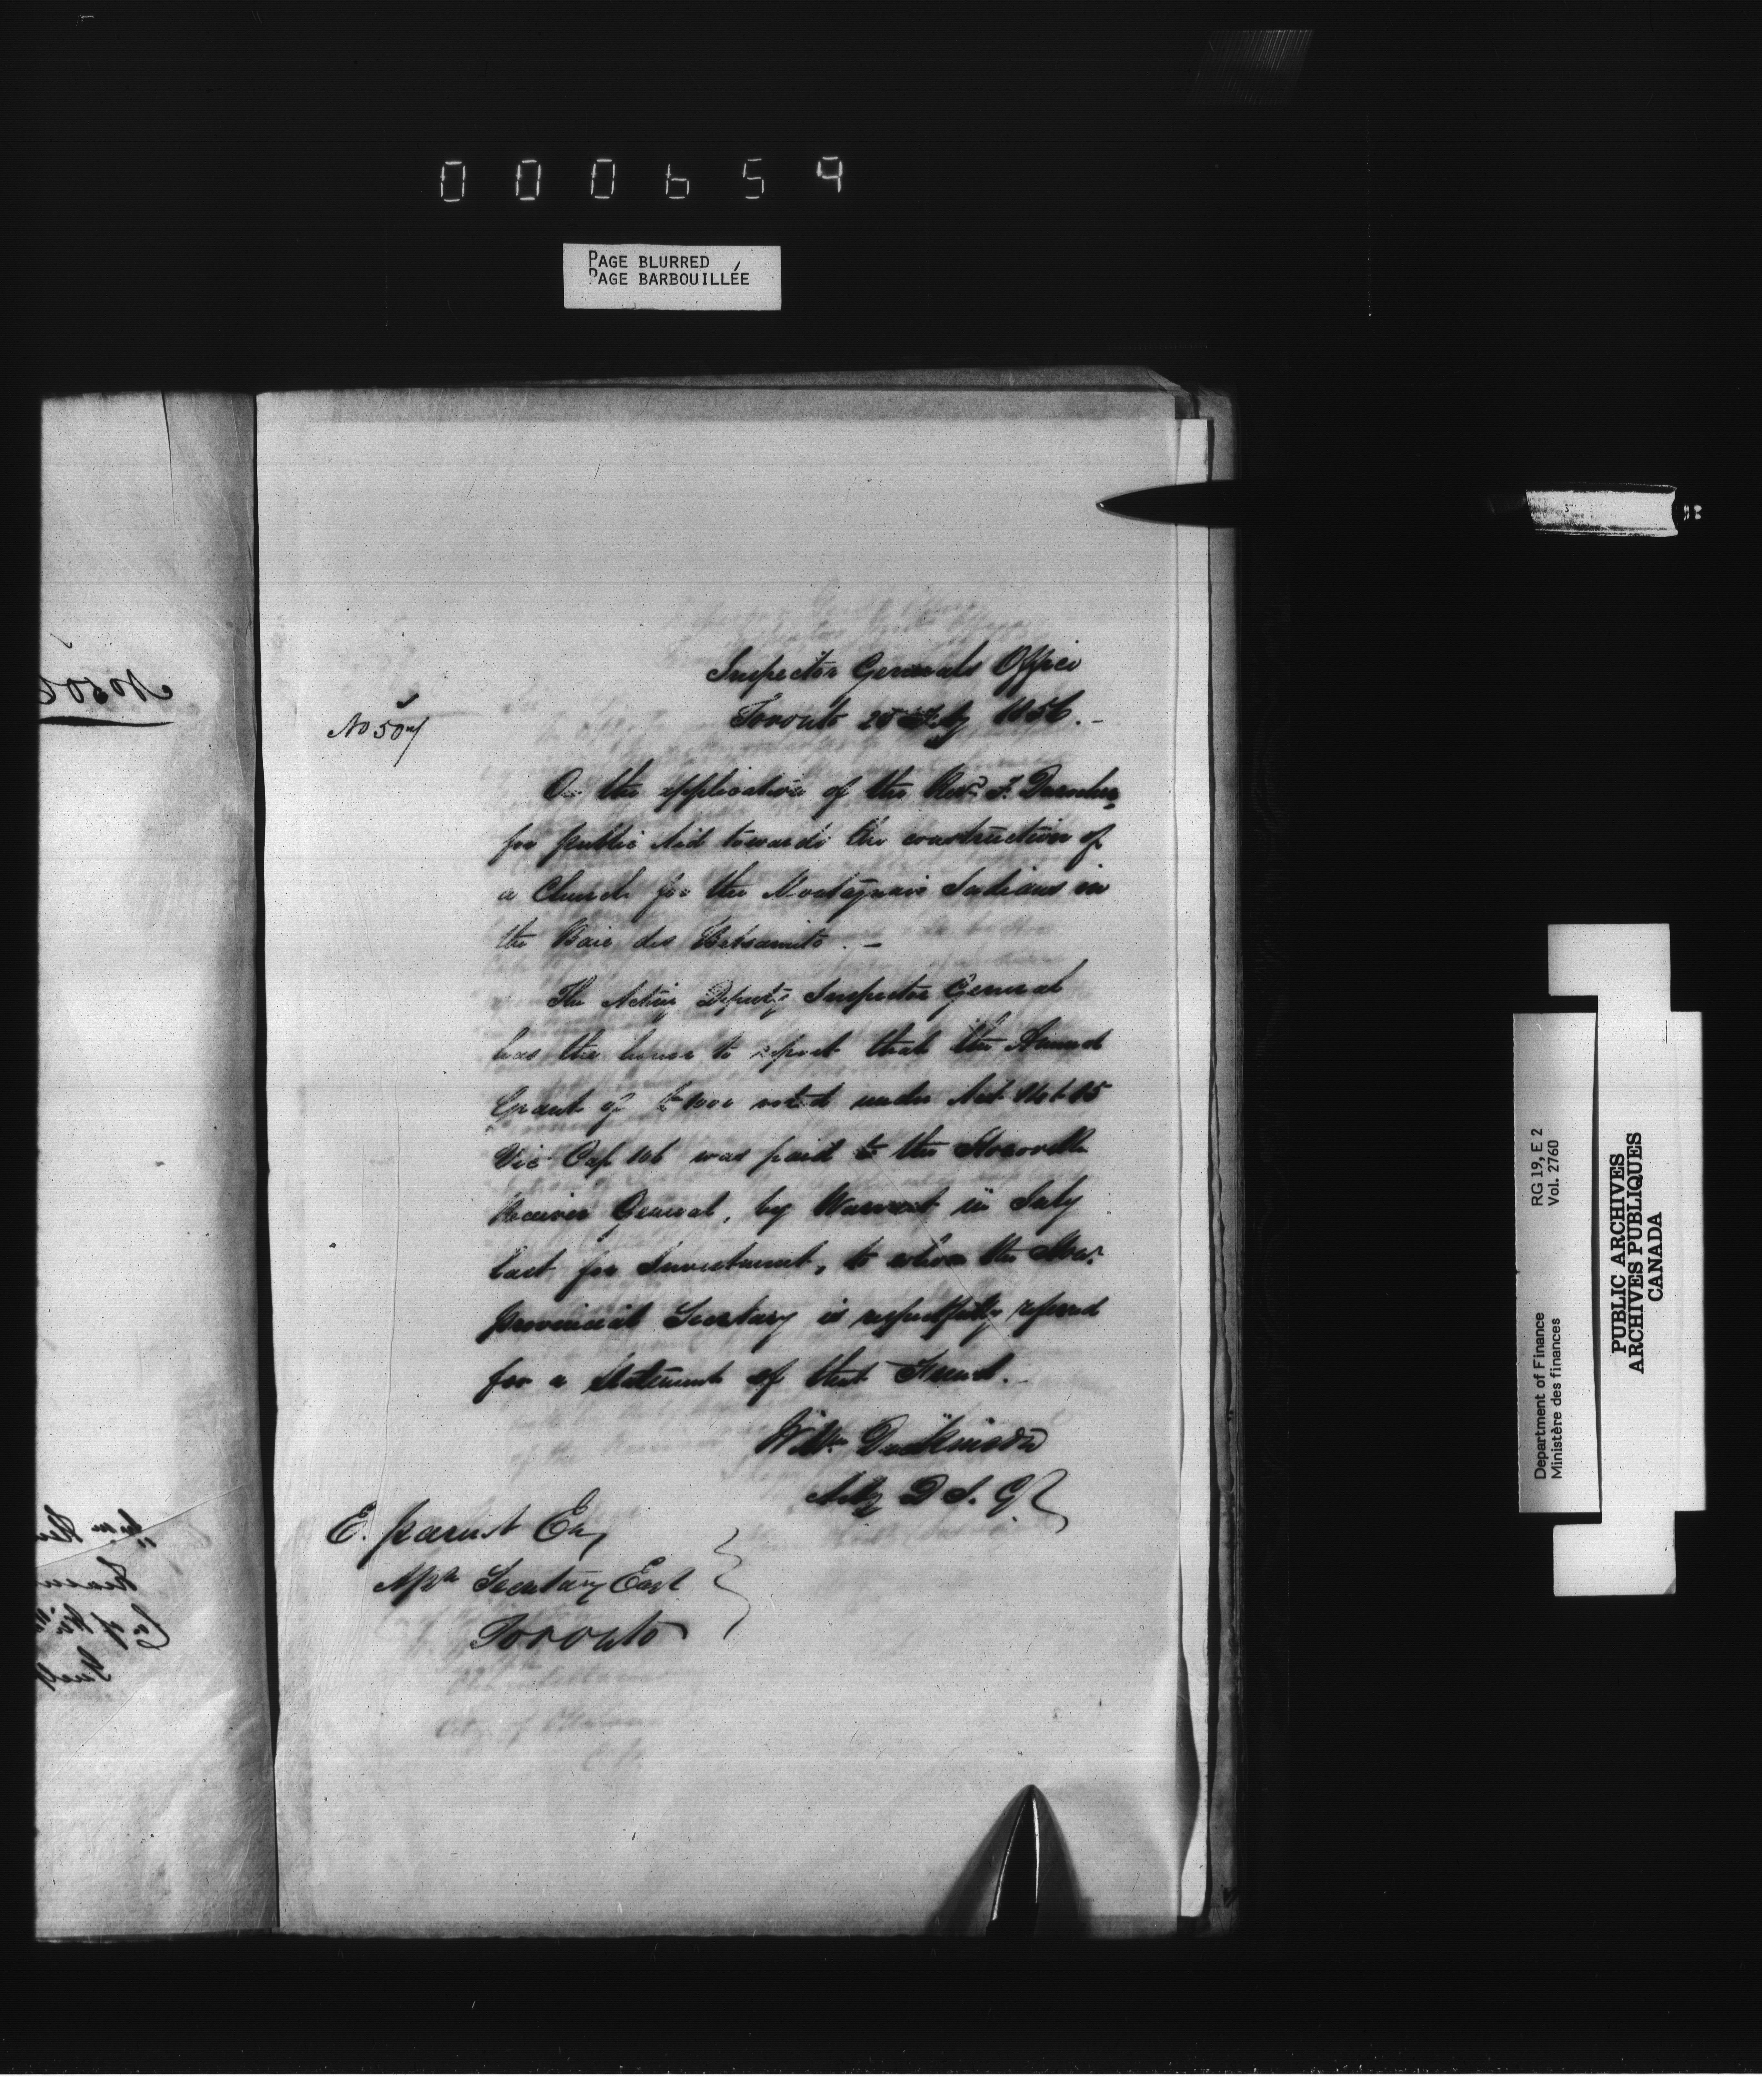 000659
PAGE BLURRED
PAGE BARBOUILLÉE
Inspector Generals Office
Toronto 25 July 1856.-
No 507
On the application of the Revd. F. Durocher
for public Aid towards the construction of
a Church for the Montagnais Indians in
the Baie des Betsamits. -
The Acting Deputy Inspector General
has the honor to report that the Annual
Grant of £1000 voted under Act 14 & 15
Vic Cap 106 was paid to the Honorable
Receiver General, by Warrant in July
last for Investment, to whom the Honr.
Provincial Secretary is respectfully referred
for a Statement of that Fund.
Willm Dickinson
Actg D I. G.
E. Parent Esq
Asst Secretary East
Toronto
No 50
RG 19, E 2
Vol. 2760
Department of Finance
Ministère des finances
PUBLIC ARCHIVES
ARCHIVES PUBLIQUES
CANADA